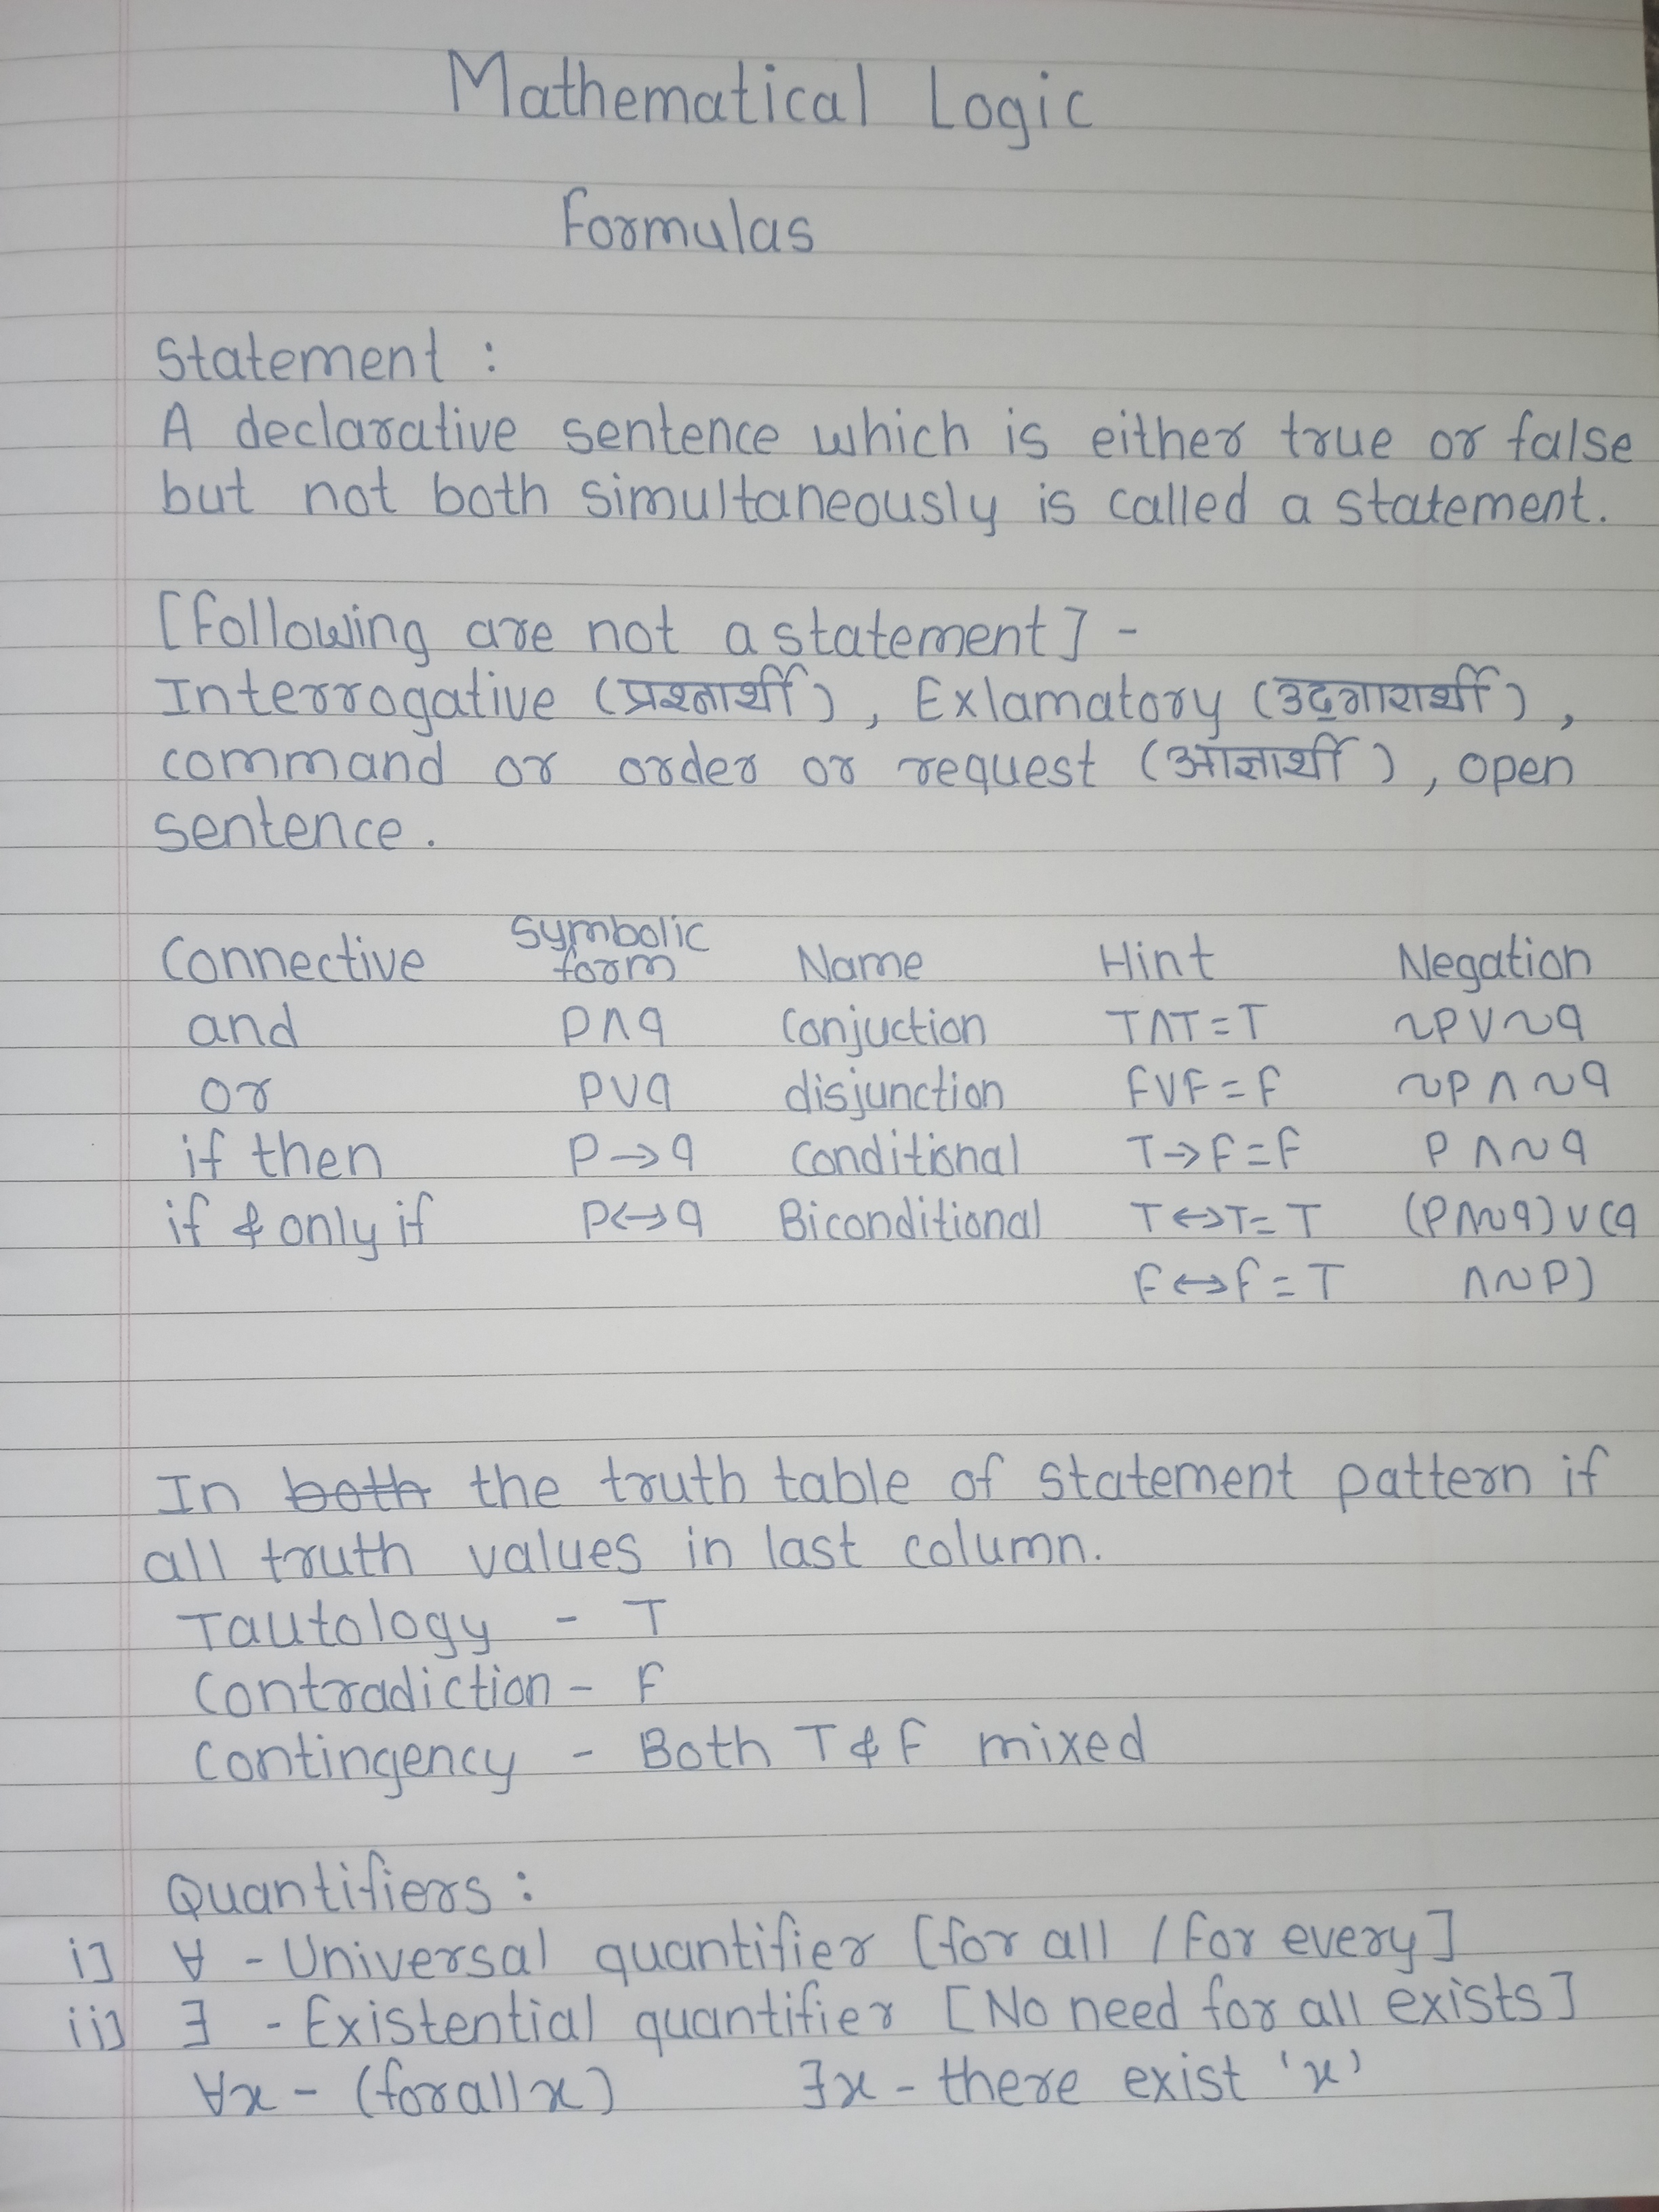 Mathematical Logic
Formulas
Statement :
A declarative sentence which is either true or false
but not both simultaneously is called a statement.
[Following are not a statement] -
Interrogative (प्रश्नार्थी), Exlamatory (उद्गारार्थी),
command or order or request (आज्ञार्थी), open
sentence.
Connective Symbolic form Name Hint Negation
and P∧q Conjuction T∧T=T ~P∨~q
or P∨q disjunction F∨F=F ~P∧~q
if then P→q Conditional T→F=F P∧~q
if & only if P↔q Biconditional T↔T=T (P∧~q)∨(q
F↔F=T ∧~P)
In both the truth table of statement pattern if
all truth values in last column.
Tautology - T
Contradiction - F
Contingency - Both T & F mixed
Quantifiers :
i] ∀ - Universal quantifier [for all / For every]
ii] ∃ - Existential quantifier [No need for all exists]
∀x - (for all x) ∃x - there exist 'x'